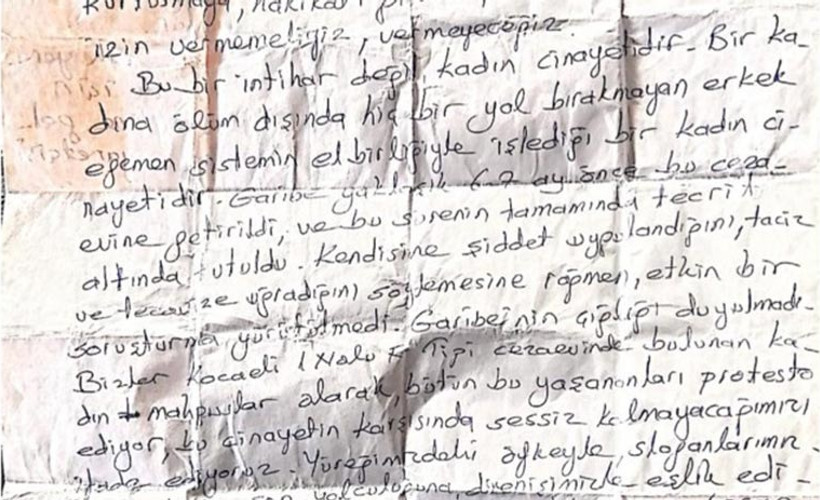 izin vermemeliyiz, vermeyeceğiz.
Bu bir intihar değil, kadın cinayetidir. Bir ka-
dına ölüm dışında hiç bir yol bırakmayan erkek
egemen sistemin elbirliğiyle işlediği bir kadın ci-
nayetidir. Garibe yaklaşık 6-7 ay önce bu ceza-
evine getirildi, ve bu sürenin tamamında tecrit
altında tutuldu. Kendisine şiddet uygulandığını, taciz
ve tecavüze uğradığını söylemesine rağmen, etkin bir
soruşturma yürütülmedi. Garibe'nin çığlığı duyulmadı.
Bizler Kocaeli 1 Nolu F Tipi cezaevinde bulunan ka-
dın mahpuslar olarak, bütün bu yaşananları protesto
ediyor, bu cinayetin karşısında sessiz kalmayacağımızı
ifade ediyoruz. Yüreğimizdeki öfkeyle, sloganlarımız
yolculuğuna direnişimizle eşlik edi-